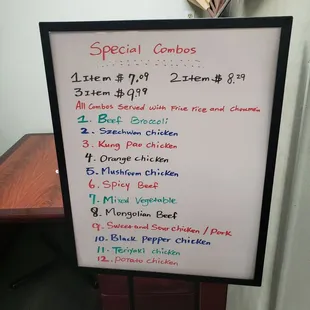 Special Combos
1 Item $ 7.09 2 Item $ 8.29
3 Item $ 9.99
All Combos Served with Frice rice and Chowmein
1. Beef Broccoli
2. Szechwan chicken
3. Kung Pao chicken
4. Orange chicken
5. Mushroom chicken
6. Spicy Beef
7. Mixed Vegetable
8. Mongolian Beef
9. Sweet and Sour chicken / Pork
10. Black Pepper chicken
11. Teriyaki chicken
12. Potato chicken